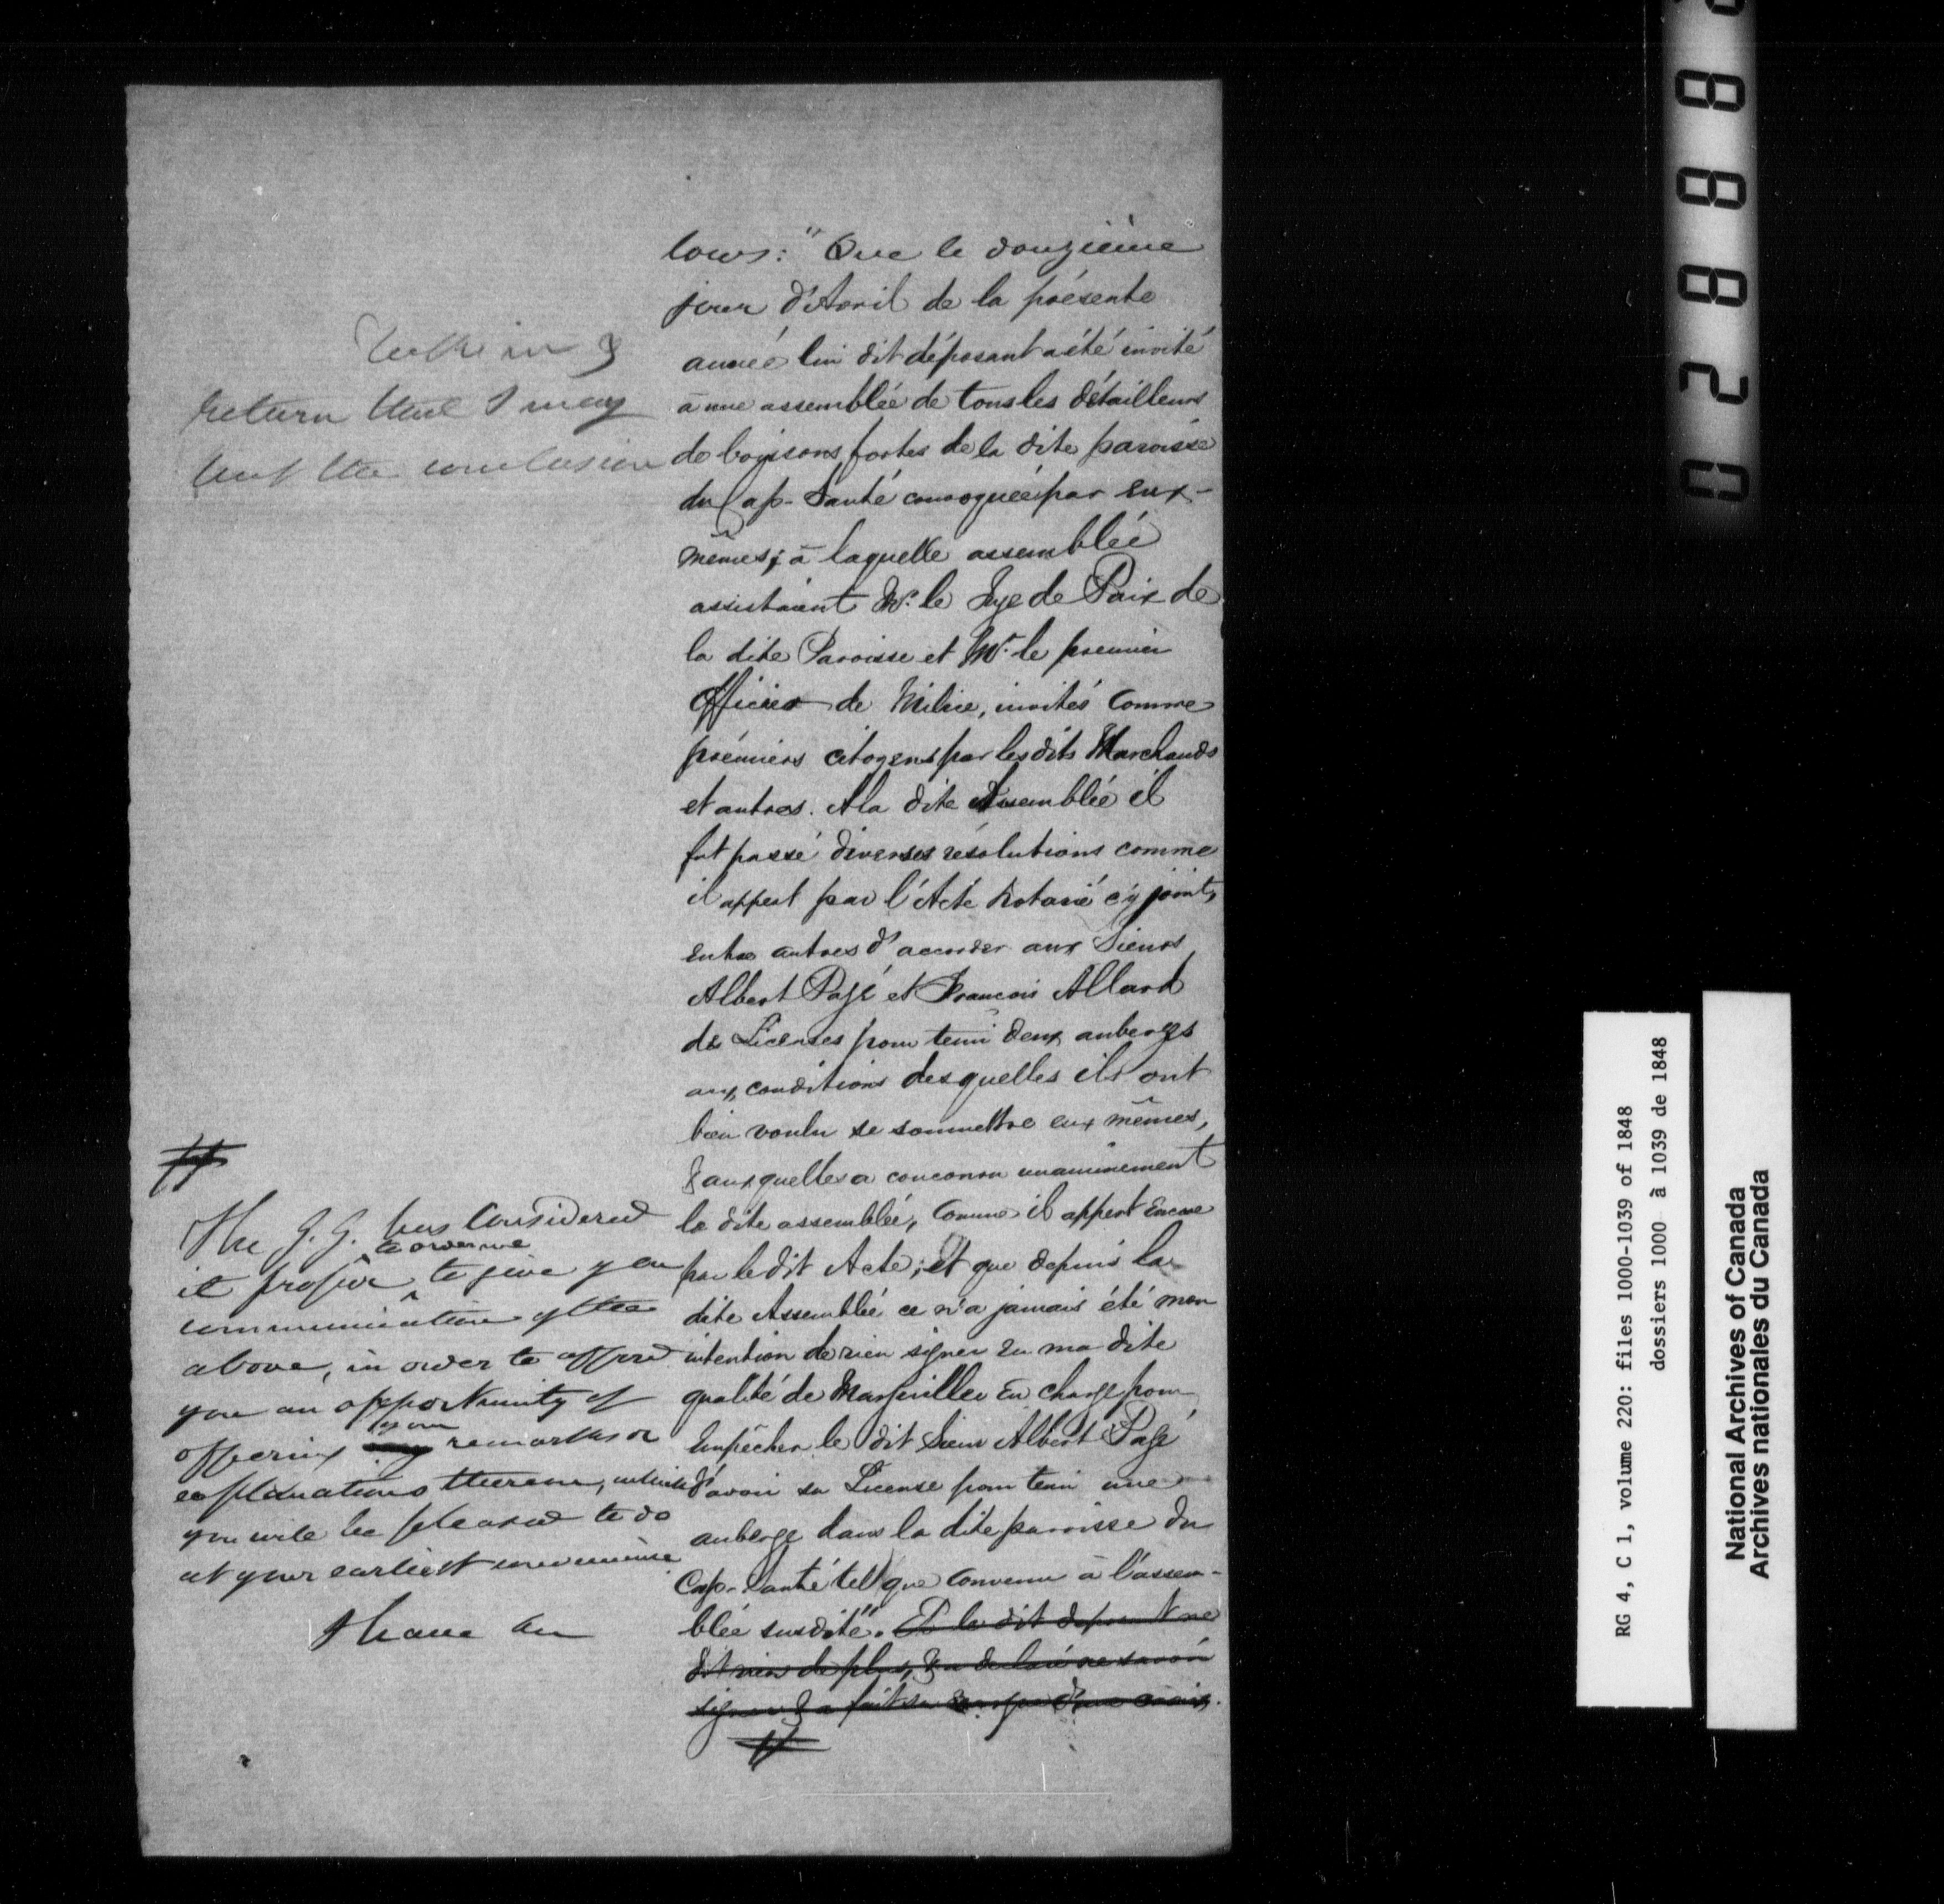 return that I may
put the conclusion
lows: "Que le douzième
jour d'Avril de la présente
année lui dit déposant a été invité
à une assemblée de tous les détailleurs
de boissons fortes de la dite paroisse
du Cap-Santé convoquée par eux-
mêmes, à laquelle assemblée
assistaient Mr. le Juge de Paix de
la dite Paroisse et Mr. le premier
Officier de Milice, invités comme
prémiers citoyens par les dits Marchands
et autres. A la dite Assemblée il
fut passé diverses résolutions comme
il appert par l'Acte Notarié cy joint,
entre autres d'accorder aux Sieurs
Albert Pagé et François Allard
de Licenses pour tenir deux auberges
aux conditions desquelles ils ont
bien voulu se soumettre eux mêmes,
& auxquelles a concouru unanimement
la dite assemblée, comme il appert encore
par le dit Acte; et que depuis la
dite Assemblée ce n'a jamais été mon
intention de rien signer en ma dite
qualité de Marguillier en charge pour
empêcher le dit Sieur Albert Pagé
d'avoir sa License pour tenir une
auberge dans la dite paroisse du
Cap-Santé tel que convenu à l'assem-
blée susdité". Et le dit déposant ne
dit rien de plus, & a déclaré ne savoir
signer & a fait sa marque d'une croix.
The G. G. has considered
to order me
it proper to give you
communication of the
above, in order to afford
you an opportunity of
your
offering any remarks or
explanations thereon, which
you will be pleased to do
at your earliest convenience
I have &c
02888
RG 4, C 1, volume 220: files 1000-1039 of 1848
dossiers 1000 à 1039 de 1848
National Archives of Canada
Archives nationales du Canada